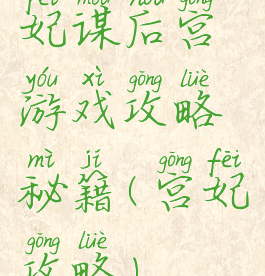 fēi móu hòu gōng
妃谋后宫
yóu xì gōng lüè
游戏攻略
mì jí gōng fēi
秘籍(宫妃
gōng lüè
攻略)